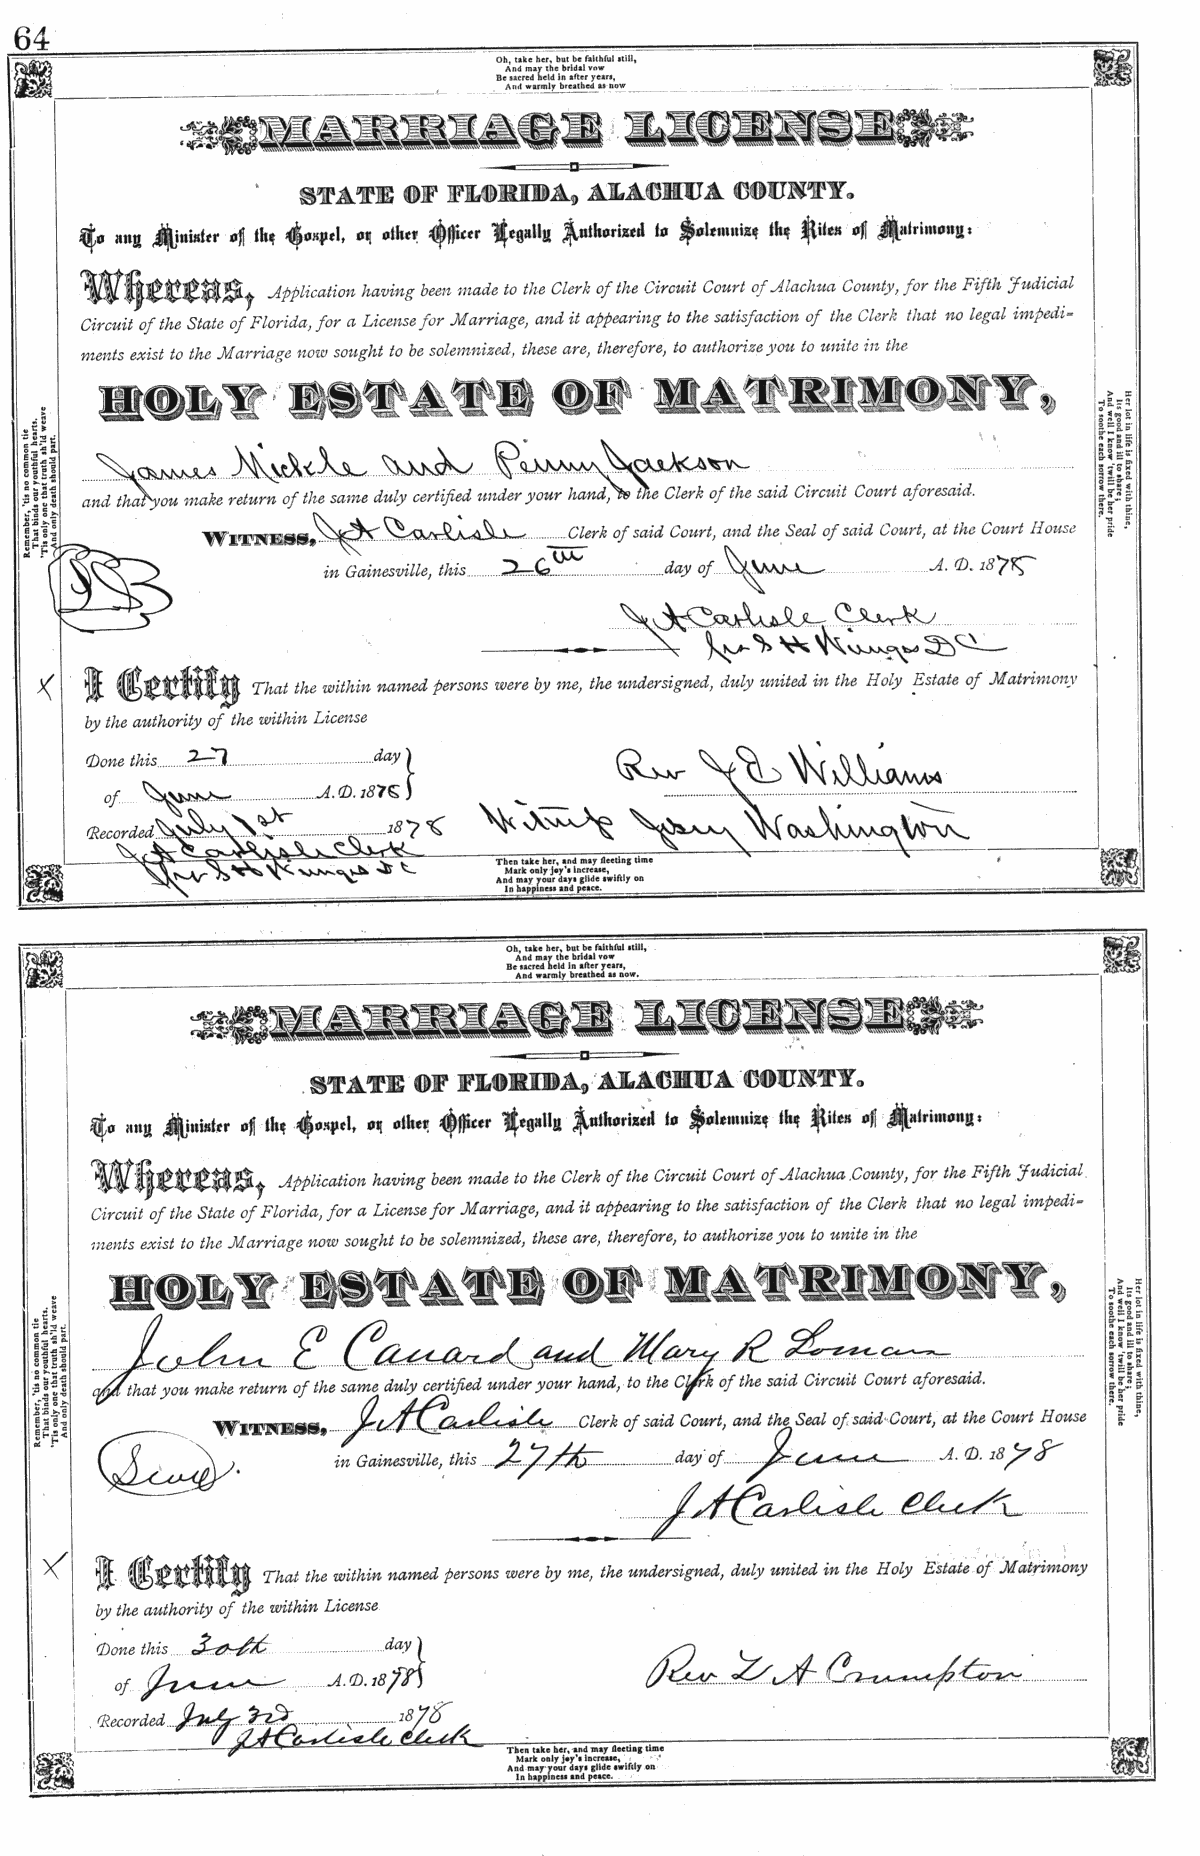 64
Oh, take her, but be faithful still,
And may the bridal vow
Be sacred held in after years,
And warmly breathed as now
MARRIAGE LICENSE
STATE OF FLORIDA, ALACHUA COUNTY.
To any Minister of the Gospel, or other Officer Legally Authorized to Solemnize the Rites of Matrimony:
Whereas, Application having been made to the Clerk of the Circuit Court of Alachua County, for the Fifth Judicial
Circuit of the State of Florida, for a License for Marriage, and it appearing to the satisfaction of the Clerk that no legal impedi-
ments exist to the Marriage now sought to be solemnized, these are, therefore, to authorize you to unite in the
HOLY ESTATE OF MATRIMONY,
James Mickle and Penny Jackson
and that you make return of the same duly certified under your hand, to the Clerk of the said Circuit Court aforesaid.
WITNESS, J A Carlisle Clerk of said Court, and the Seal of said Court, at the Court House
in Gainesville, this 26th day of June A. D. 1878
J A Carlisle Clerk
S H D C
X
I Certify That the within named persons were by me, the undersigned, duly united in the Holy Estate of Matrimony
by the authority of the within License
Done this 27 day
of June A. D. 1878
Rev J E Williams
Recorded July 1st 1878
Witness Washington
J A Carlisle Clerk
S H D C
Remember, 'tis no common tie
That binds our youthful hearts.
'Tis only one that truth sh'ld weave
And only death should part.
Her lot in life is fixed with thine,
Its good and ill to share;
And well I know 'twill be her pride
To soothe each sorrow there.
Then take her, and may fleeting time
Mark only joy's increase,
And may your days glide swiftly on
In happiness and peace.
Oh, take her, but be faithful still,
And may the bridal vow
Be sacred held in after years,
And warmly breathed as now.
MARRIAGE LICENSE
STATE OF FLORIDA, ALACHUA COUNTY.
To any Minister of the Gospel, or other Officer Legally Authorized to Solemnize the Rites of Matrimony:
Whereas, Application having been made to the Clerk of the Circuit Court of Alachua County, for the Fifth Judicial
Circuit of the State of Florida, for a License for Marriage, and it appearing to the satisfaction of the Clerk that no legal impedi-
ments exist to the Marriage now sought to be solemnized, these are, therefore, to authorize you to unite in the
HOLY ESTATE OF MATRIMONY,
John E Canard and Mary R Lomans
and that you make return of the same duly certified under your hand, to the Clerk of the said Circuit Court aforesaid.
WITNESS, J A Carlisle Clerk of said Court, and the Seal of said Court, at the Court House
in Gainesville, this 27th day of June A. D. 1878
J A Carlisle Clerk
X
I Certify That the within named persons were by me, the undersigned, duly united in the Holy Estate of Matrimony
by the authority of the within License
Done this 30th day
of June A. D. 1878
Rev L A Crumpton
Recorded July 3rd 1878
J A Carlisle Clerk
Remember, 'tis no common tie
That binds our youthful hearts.
'Tis only one that truth sh'ld weave
And only death should part.
Her lot in life is fixed with thine,
Its good and ill to share;
And well I know 'twill be her pride
To soothe each sorrow there.
Then take her, and may fleeting time
Mark only joy's increase,
And may your days glide swiftly on
In happiness and peace.